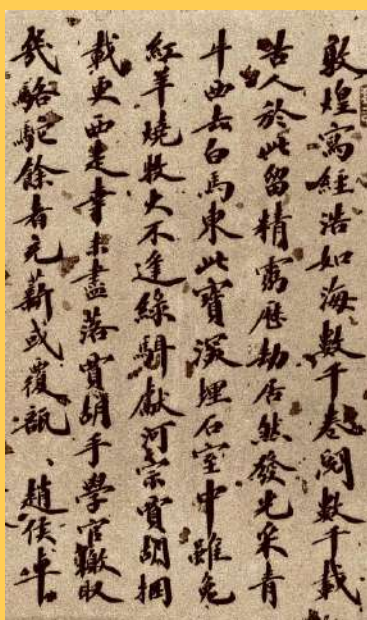 敦煌寫經浩如海數千卷閱數千載
古人於此留精靈歷劫居然發光采青
牛西去白馬東此寶深埋石室中雖免
紅羊燒牧火不逢綠駬獻河宗賈胡捆
載更西走幸未盡落賈胡手學官檄取
幾駱駝餘者充薪或覆瓿趙侯卓